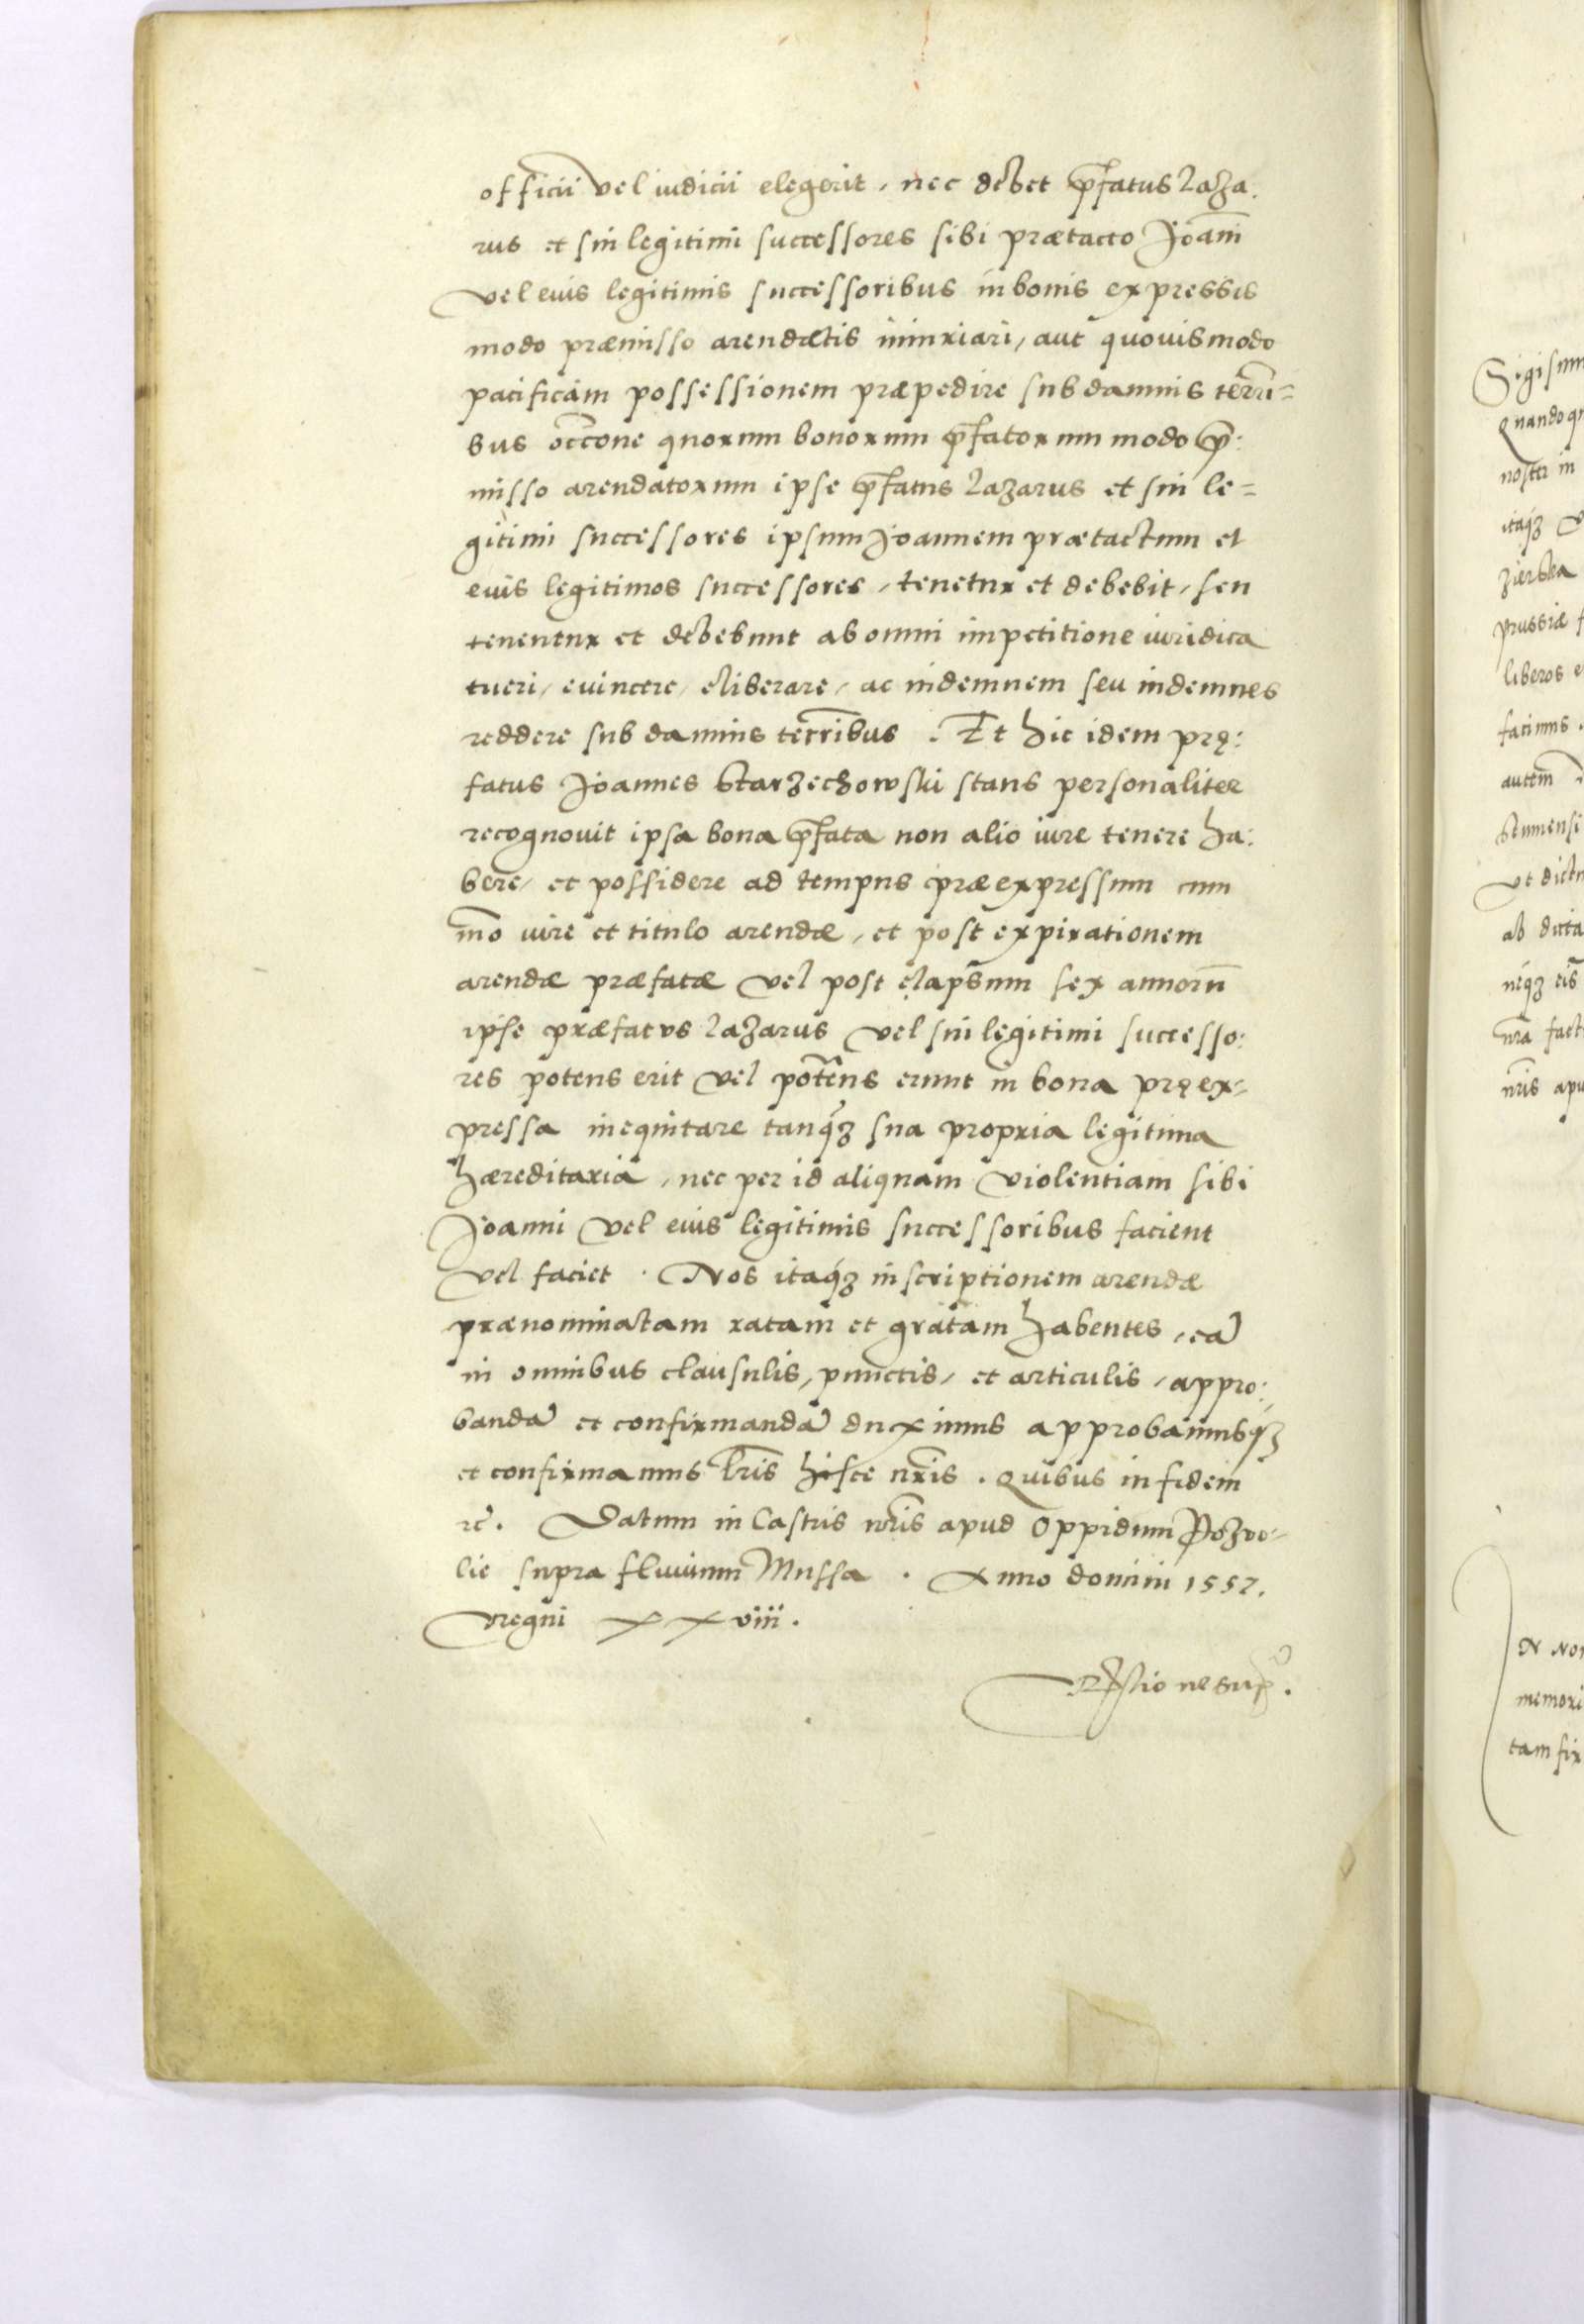 officii vel iudicii elegerit, nec debet p̄fatus Laza:
rus et sui legitimi successores sibi prætacto Joan̄i
vel eius legitimis successoribus in bonis expressis
modo præmisso arendatis iniuriari, aut quovismodo
pacificam possessionem præpedire sub damnis terri=
bus occ̄one quorum bonorum p̄fatorum modo p̄:
misso arendatorum ipse p̄fatus Lazarus et sui le=
gitimi successores ipsum Joannem prætactum et
eius legitimos successores, tenetur et debebit, seu
tenentur et debebunt ab omni impetitione iuridica
tueri, evincere, eliberare, ac indemnem seu indemnes
reddere sub damnis terribus. Et hic idem prę:
fatus Joannes Starzechowski stans personaliter
recognovit ipsa bona p̄fata non alio iure tenere ha:
bere, et possidere ad tempus præexpressum cum
mō iure et titulo arendæ, et post expirationem
arendæ præfatæ vel post elapsum sex annorū
ipse præfatus Lazarus vel sui legitimi successo:
res potens erit vel potentes erunt in bona pręex=
pressa inequitare tanq̃ȝ sua propria legitima
hæreditaria, nec per id aliquam violentiam sibi
Joanni vel eius legitimis successoribus facient
vel faciet. Nos itaqȝ inscriptionem arendæ
prænominatam ratam et gratam habentes, eā
in omnibus clausulis, punctis, et articulis, appro:
bandā et confirmandā duximus approbamusqȝ
et confirmamus l̄ris hisce nr̄is. Quibus in fidem
rc̄. Datum in Castris nr̄is apud Oppidum Pozvo=
lie supra fluvium Mussa. Anno domini 1557.
regni xxviii.
Sigism
Quandoq
noster in
itaqȝ
prussiæ f
liberos e
facimus.
autem
ut dictu
ab dicta
neqȝ eis
nr̄a fact
nr̄is apu
IN Nom
memori
tam fir